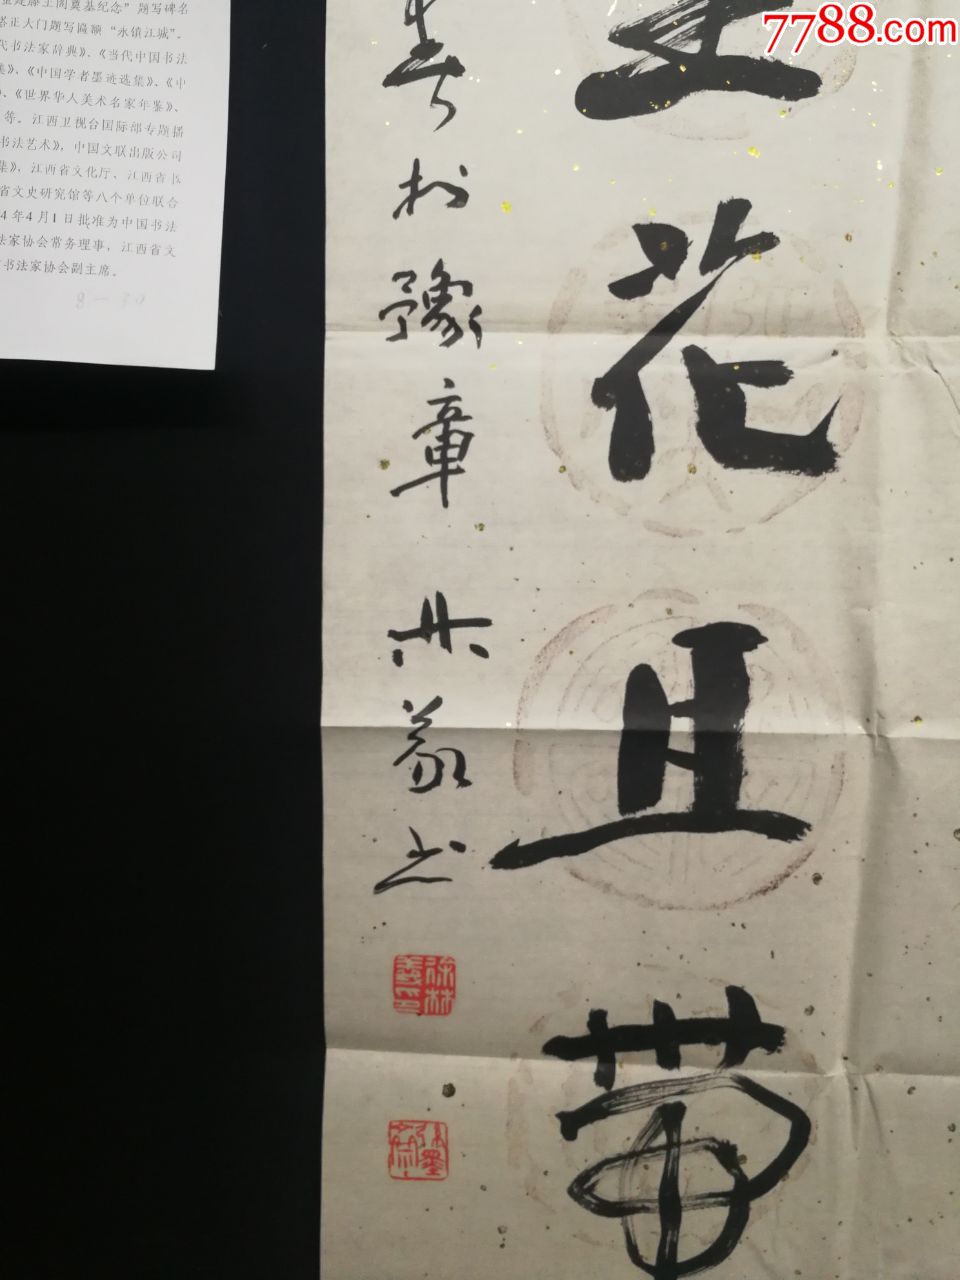 7788.com
重建滕王阁奠基纪念”题写碑名
塔正大门题写匾额“永镇江城”。
代书法家辞典》、《当代中国书法
集》、《中国学者墨迹选集》、《中
》、《世界华人美术名家年鉴》、
等。江西卫视台国际部专题播
书法艺术》，中国文联出版公司
集》，江西省文化厅、江西省书
省文史研究馆等八个单位联合
4年4月1日批准为中国书法
法家协会常务理事，江西省文
书法家协会副主席。
8-30
花且带
春于豫章林义书
徐林義印